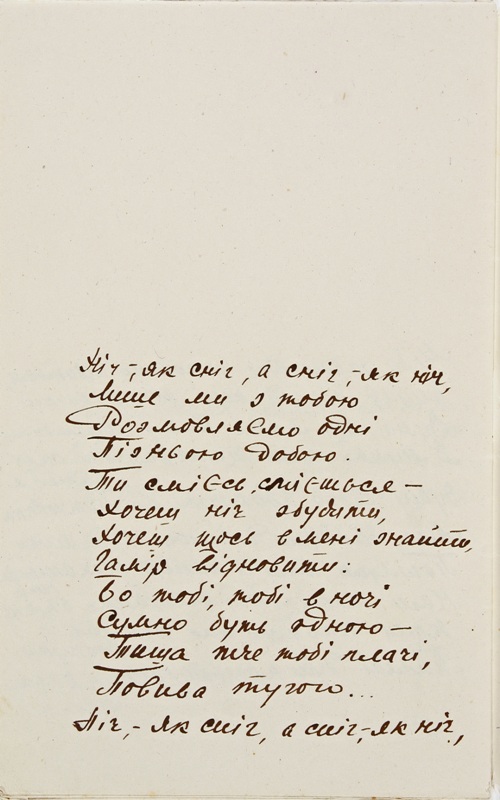 Ніч,- як сніг, а сніг,- як ніч,
Лише ми з тобою
Розмовляємо одні
Пізньою добою.
Ти смієсь, смієшься —
Хочеш ніч збудити,
Хочеш щось в мені знайти,
Гамір відновити:
Бо тобі, тобі в ночі
Сумно буть одною —
Тиша тче тобі плачі,
Повива тугою...
Ніч,- як сніг, а сніг,- як ніч,